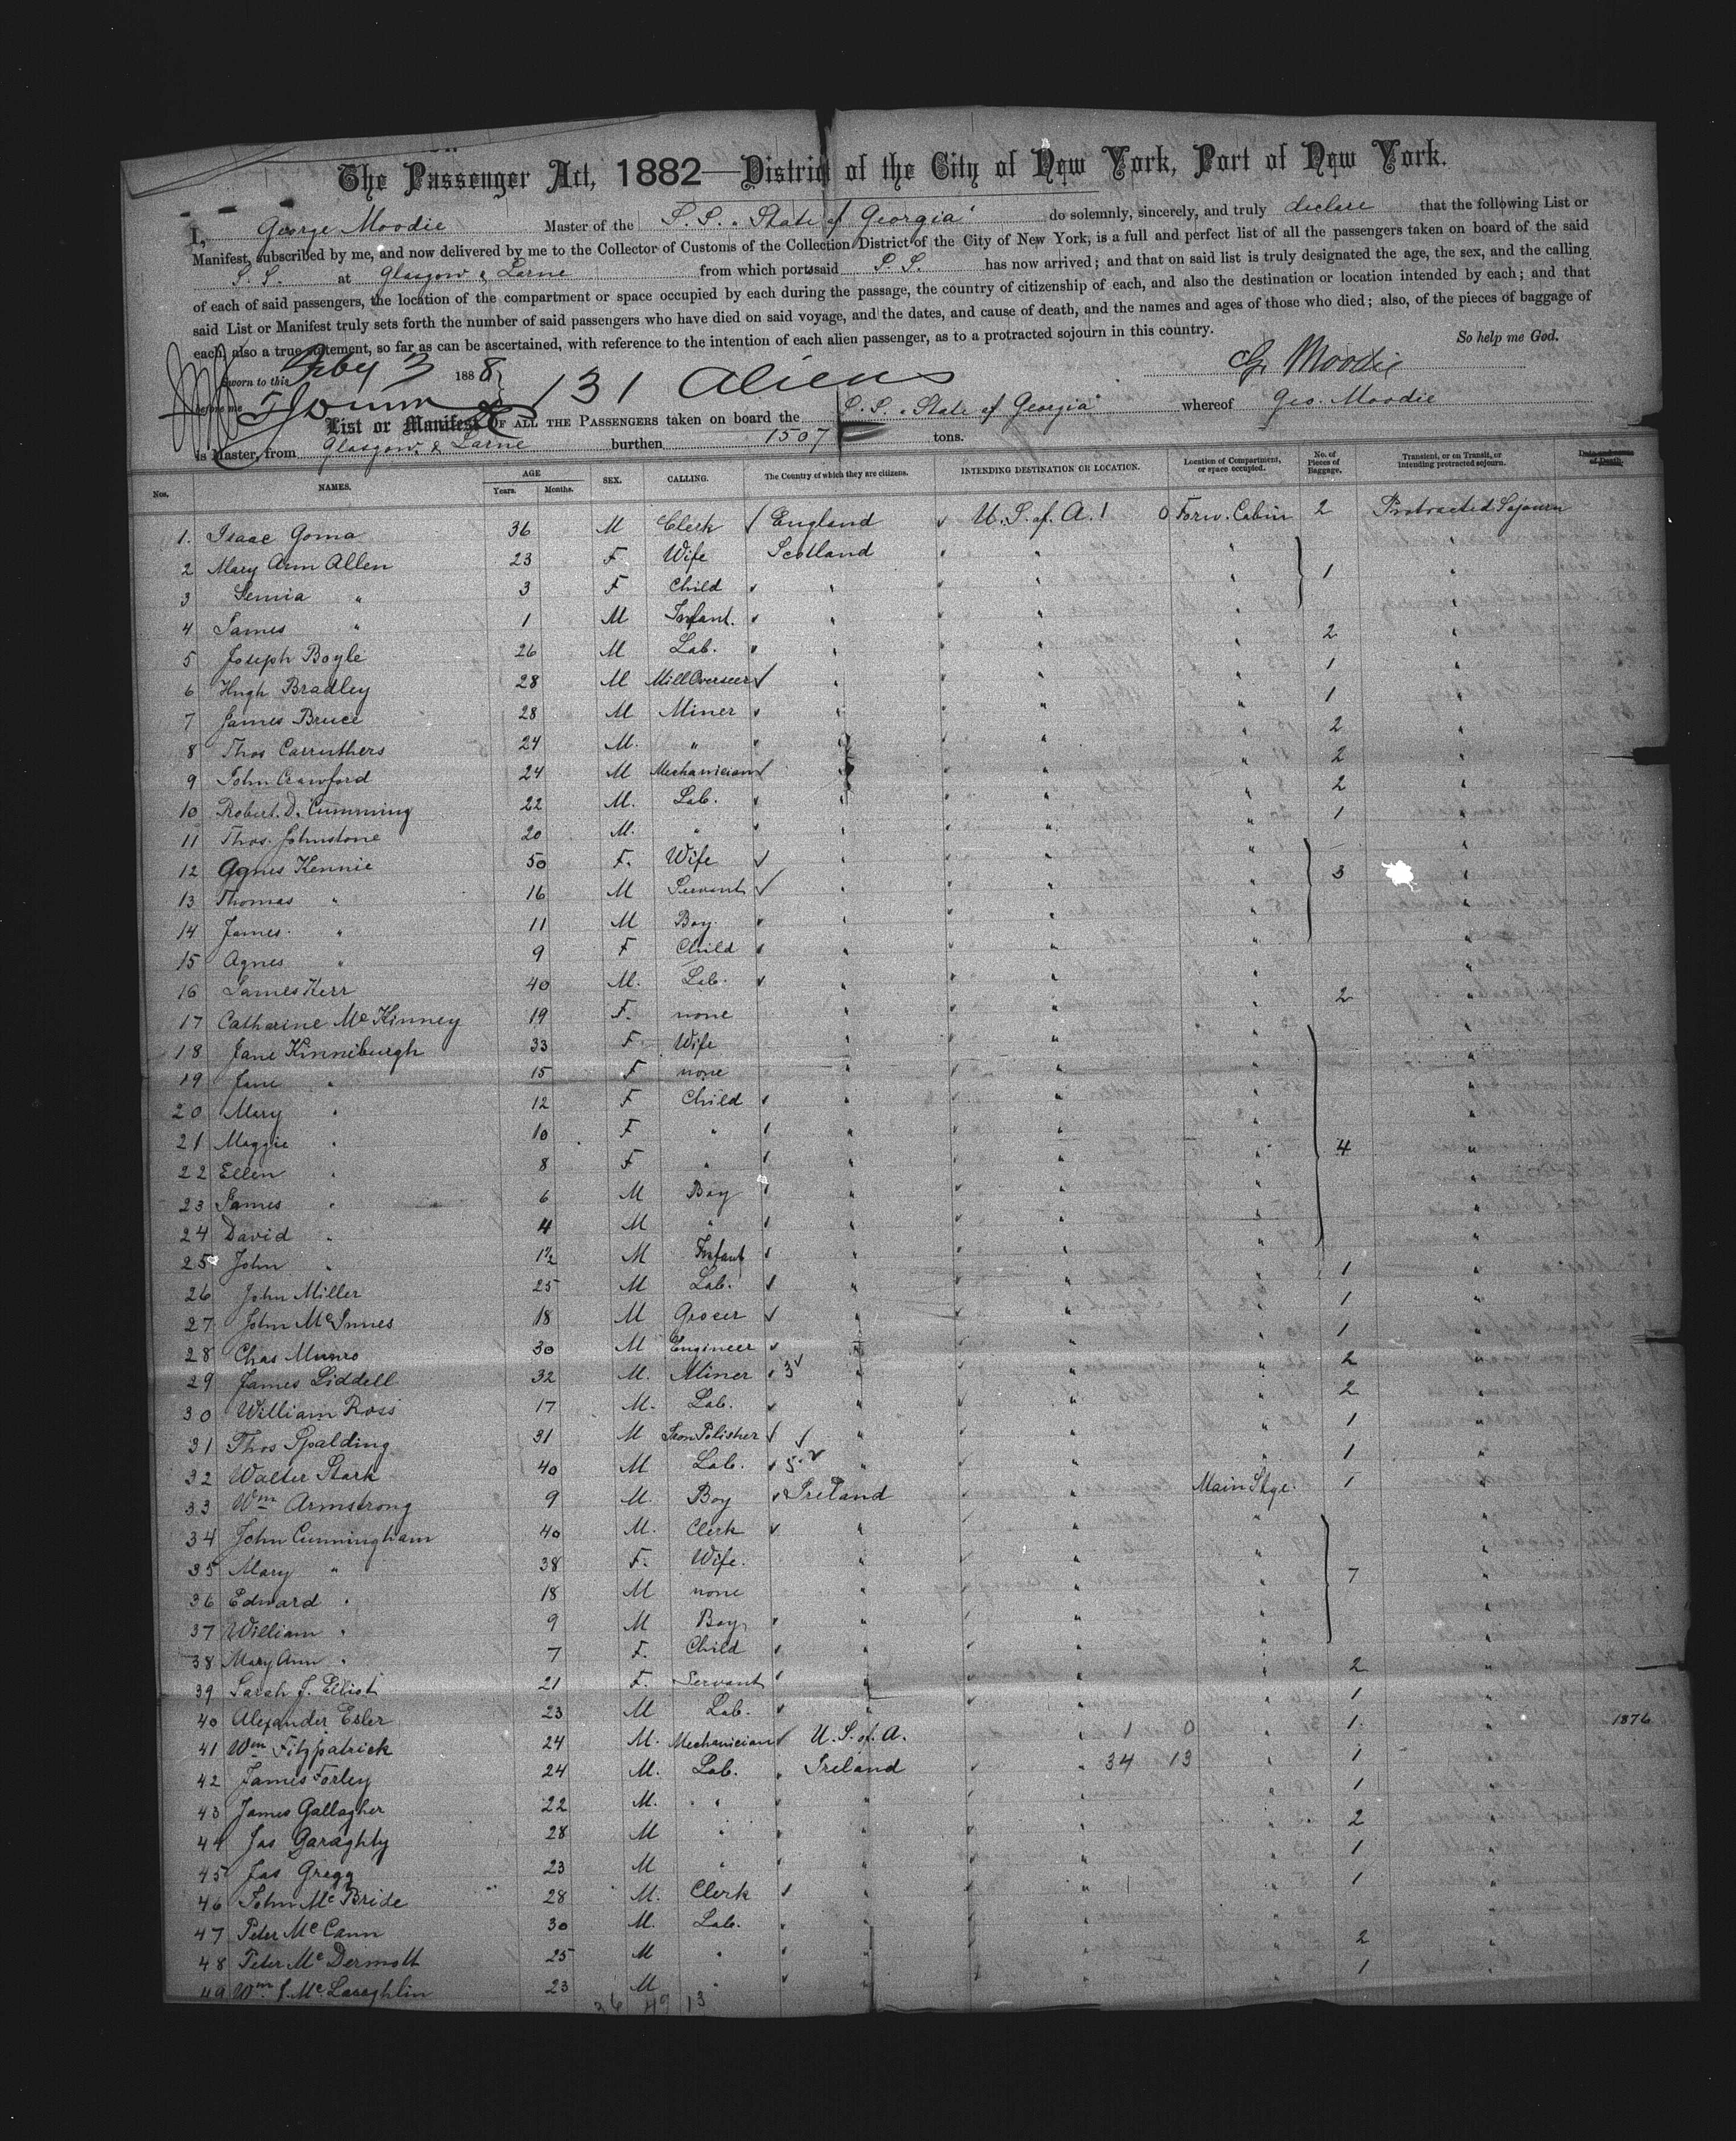 The Passenger Act, 1882—District of the City of New York, Port of New York.
I, George Moodie Master of the S.S. "State of Georgia" do solemnly, sincerely, and truly declare that the following List or
Manifest, subscribed by me, and now delivered by me to the Collector of Customs of the Collection District of the City of New York, is a full and perfect list of all the passengers taken on board of the said
S.S. at Glasgow & Larne from which port said S.S. has now arrived; and that on said list is truly designated the age, the sex, and the calling
of each of said passengers, the location of the compartment or space occupied by each during the passage, the country of citizenship of each, and also the destination or location intended by each; and that
said List or Manifest truly sets forth the number of said passengers who have died on said voyage, and the dates, and cause of death, and the names and ages of those who died; also, of the pieces of baggage of
each, also a true statement, so far as can be ascertained, with reference to the intention of each alien passenger, as to a protracted sojourn in this country. So help me God.
Sworn to this Feby 3 1888 131 Aliens G. Moodie
before me
List or Manifest OF ALL THE PASSENGERS taken on board the S.S. "State of Georgia" whereof Geo. Moodie
is Master, from Glasgow & Larne burthen 1507 tons.
Nos. NAMES. AGE Years. Months. SEX. CALLING. The Country of which they are citizens. INTENDING DESTINATION OR LOCATION. Location of Compartment, or space occupied. No. of Pieces of Baggage. Transient, or on Transit, or intending protracted sojourn. Date and cause of Death.
1. Isaac Goma 36 M Clerk England U.S. of A. 1 0 Forw. Cabin 2 Protracted Sojourn
2 Mary Ann Allen 23 F Wife Scotland "
3 " 3 F Child " 1
4 James " 1 M Infant. "
5 Joseph Boyle 26 M Lab. " 2
6 Hugh Bradley 28 M Mill Overseer " 1
7 James Bruce 28 M Miner " 1
8 Thos Carruthers 24 M. " " 2
9 John Crawford 24 M Mechanician " 2
10 Robert. D. Cumming 22 M. Lab. " 2
11 Thos. Johnstone 20 M. " " 1
12 Agnes Kennie 50 F. Wife "
13 Thomas " 16 M Servant " 3
14 James " 11 M Boy "
15 Agnes " 9 F Child "
16 James Kerr 40 M. Lab. "
17 Catharine McKinney 19 F. none " 2
18 Jane Kinniburgh 33 F. Wife "
19 Jane " 15 F none "
20 Mary " 12 F Child "
21 Maggie " 10 F " "
22 Ellen " 8 F " " 4
23 James " 6 M Boy "
24 David " 4 M " "
25 John " 1½ M Infant "
26 John Miller 25 M Lab. " 1
27 John McInnes 18 M Grocer " 1
28 Chas Munro 30 M Engineer " 1
29 James Liddell 32 M. Miner 3 " 2
30 William Ross 17 M. Lab. " 2
31 Thos Spalding 31 M Iron Polisher " 1
32 Walter Stark 40 M Lab. 5 " 1
33 Wm Armstrong 9 M. Boy Ireland " Main Stge. 1
34 John Cunningham 40 M. Clerk "
35 Mary " 38 F. Wife. "
36 Edward " 18 M none " 7
37 William " 9 M Boy "
38 Mary Ann " 7 F. Child "
39 Sarah J. Elliot 21 F. Servant " 2
40 Alexander Esler 23 M Lab. " 1
41 Wm Fitzpatrick 24 M. Mechanician U.S. of A. " 1 0 1 1876
42 James Forley 24 M. Lab. Ireland " 34 13 1
43 James Gallagher 22 M. " " 1
44 Jas Garaghty 28 M " " 2
45 Jas Gregg 23 M " " 1
46 John McBride 28 M. Clerk " 1
47 Peter McCann 30 M. Lab. "
48 Peter McDermott 25 M " " 2
49 Wm J. McLaughlin 23 M " " 1
36 49 13